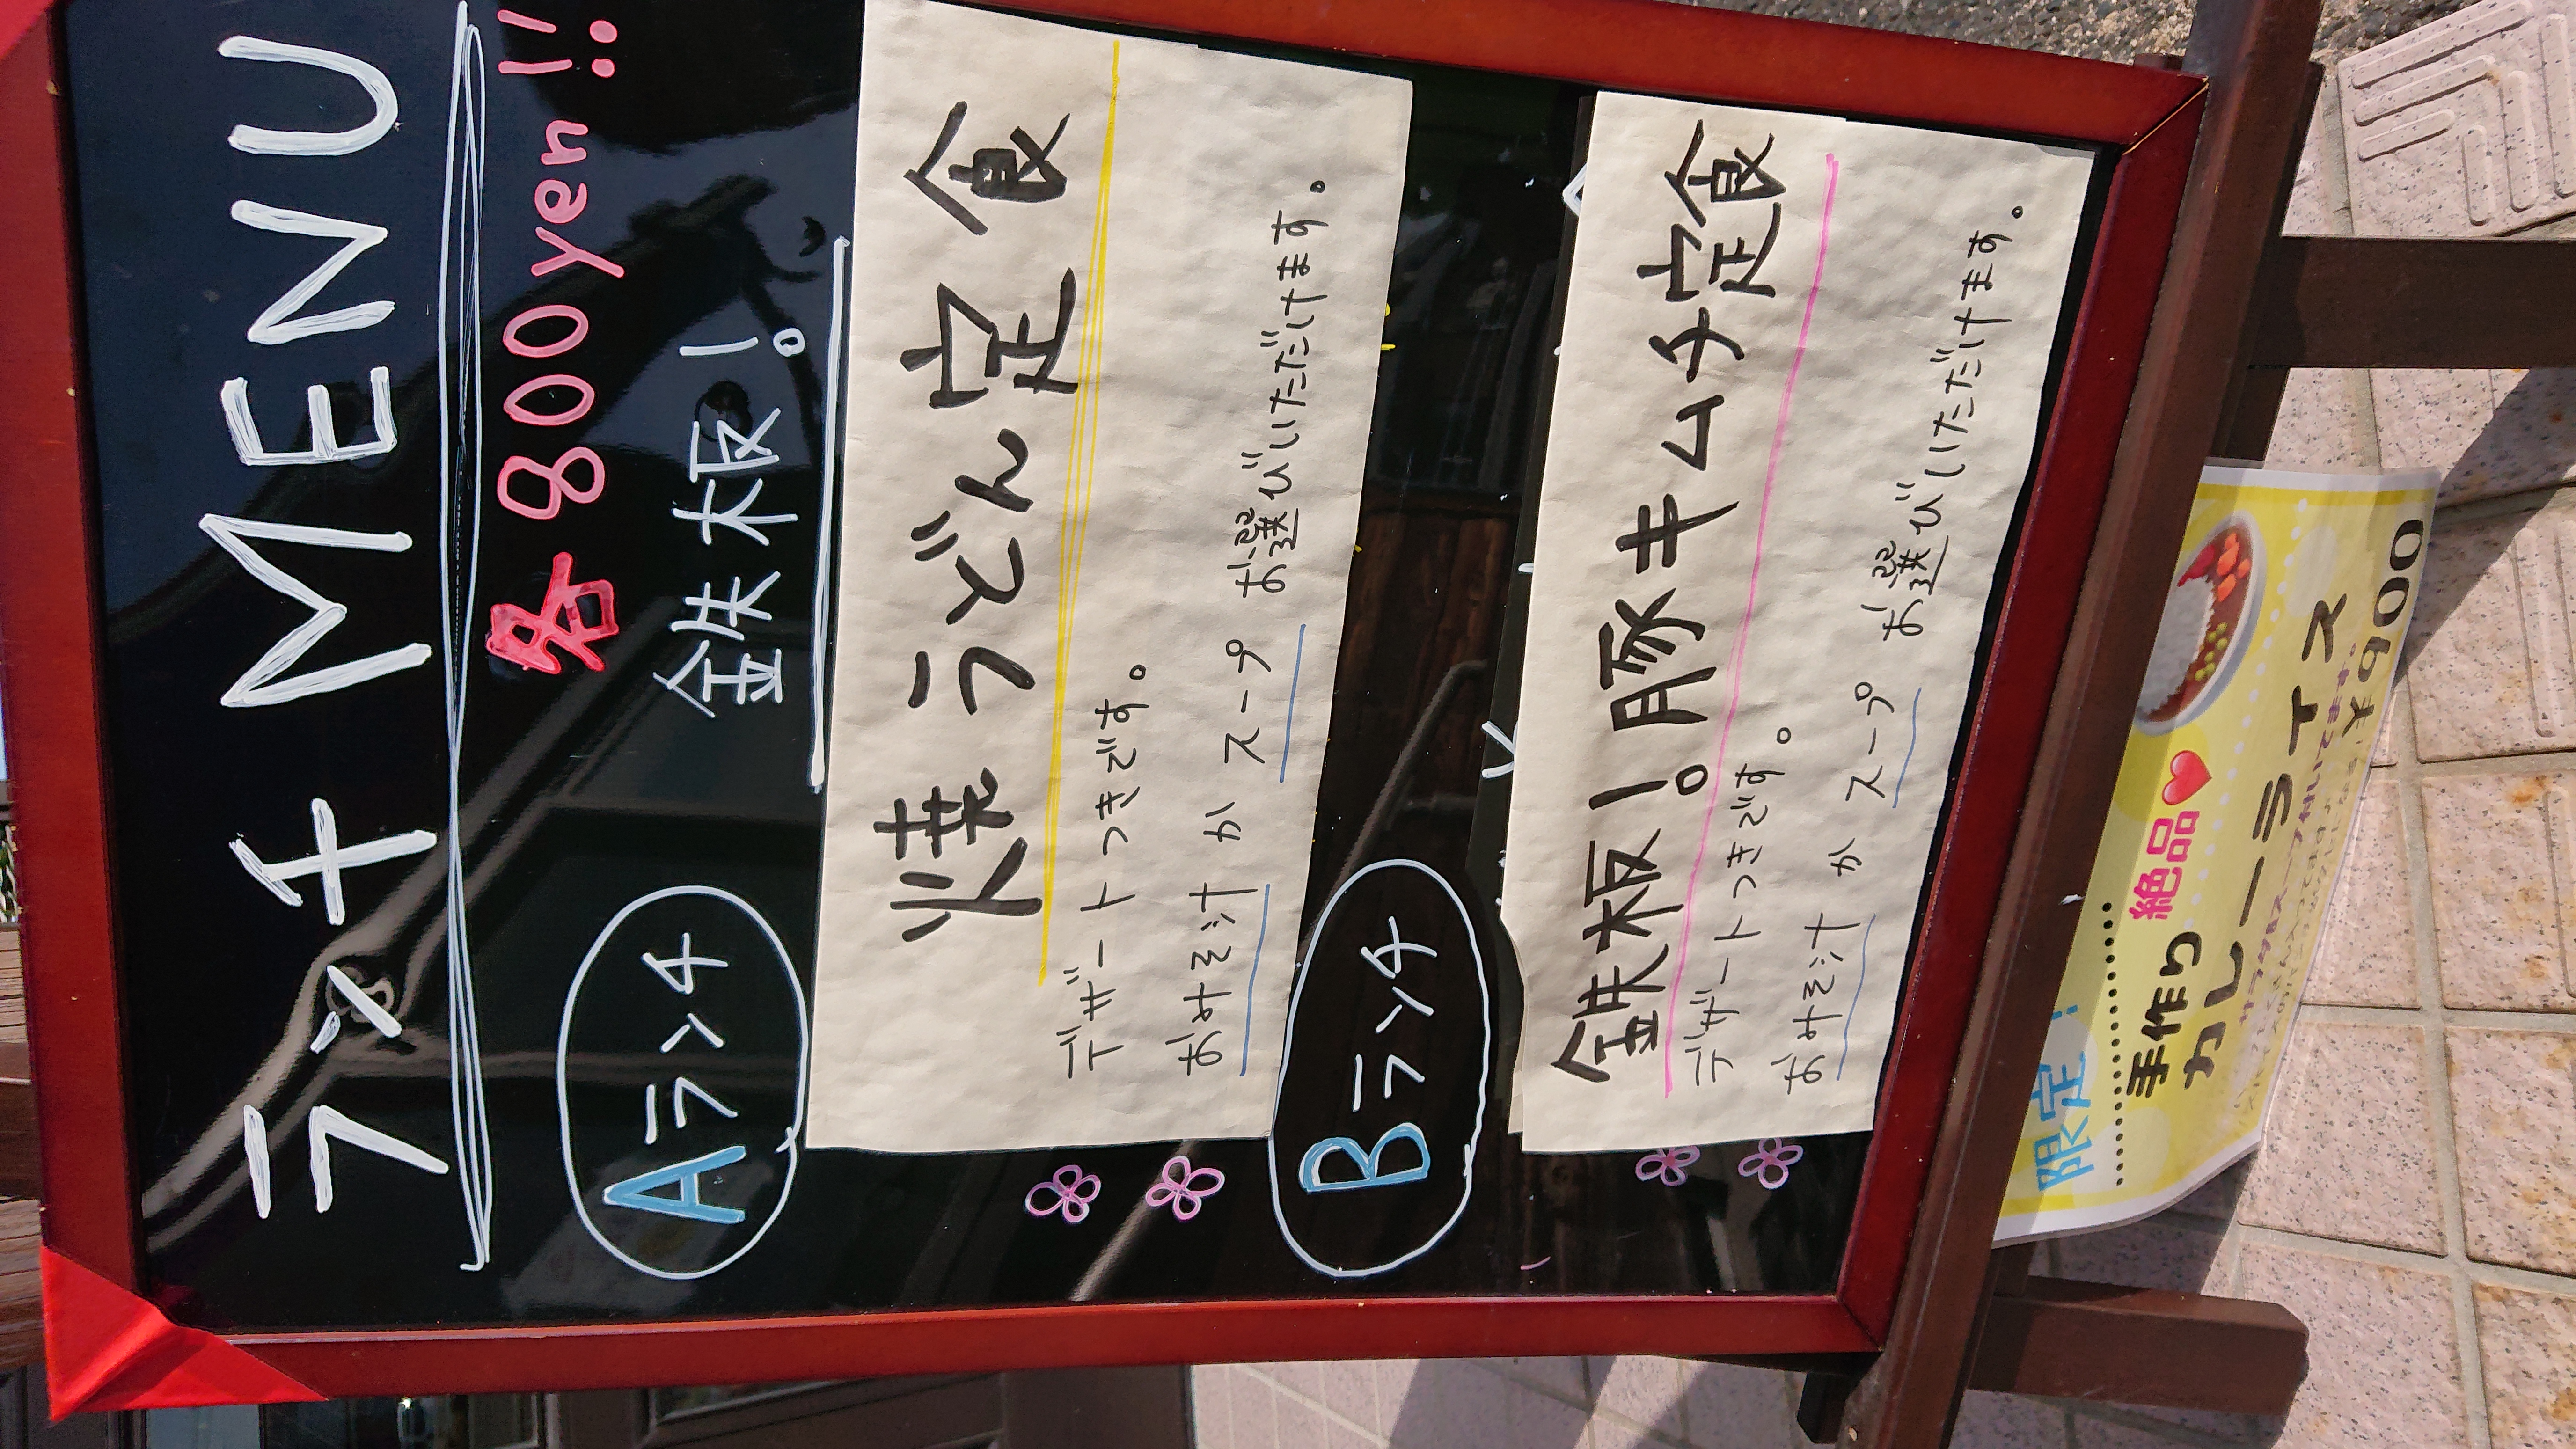 ランチ MENU
各 800yen!!
Aランチ 鉄板!
焼うどん定食
デザートつきです。
おみそ汁 か スープ お選びいただけます。
Bランチ
鉄板!豚キムチ定食
デザートつきです。
おみそ汁 か スープ お選びいただけます。
限定!
手作り 絶品
カレーライス
¥900